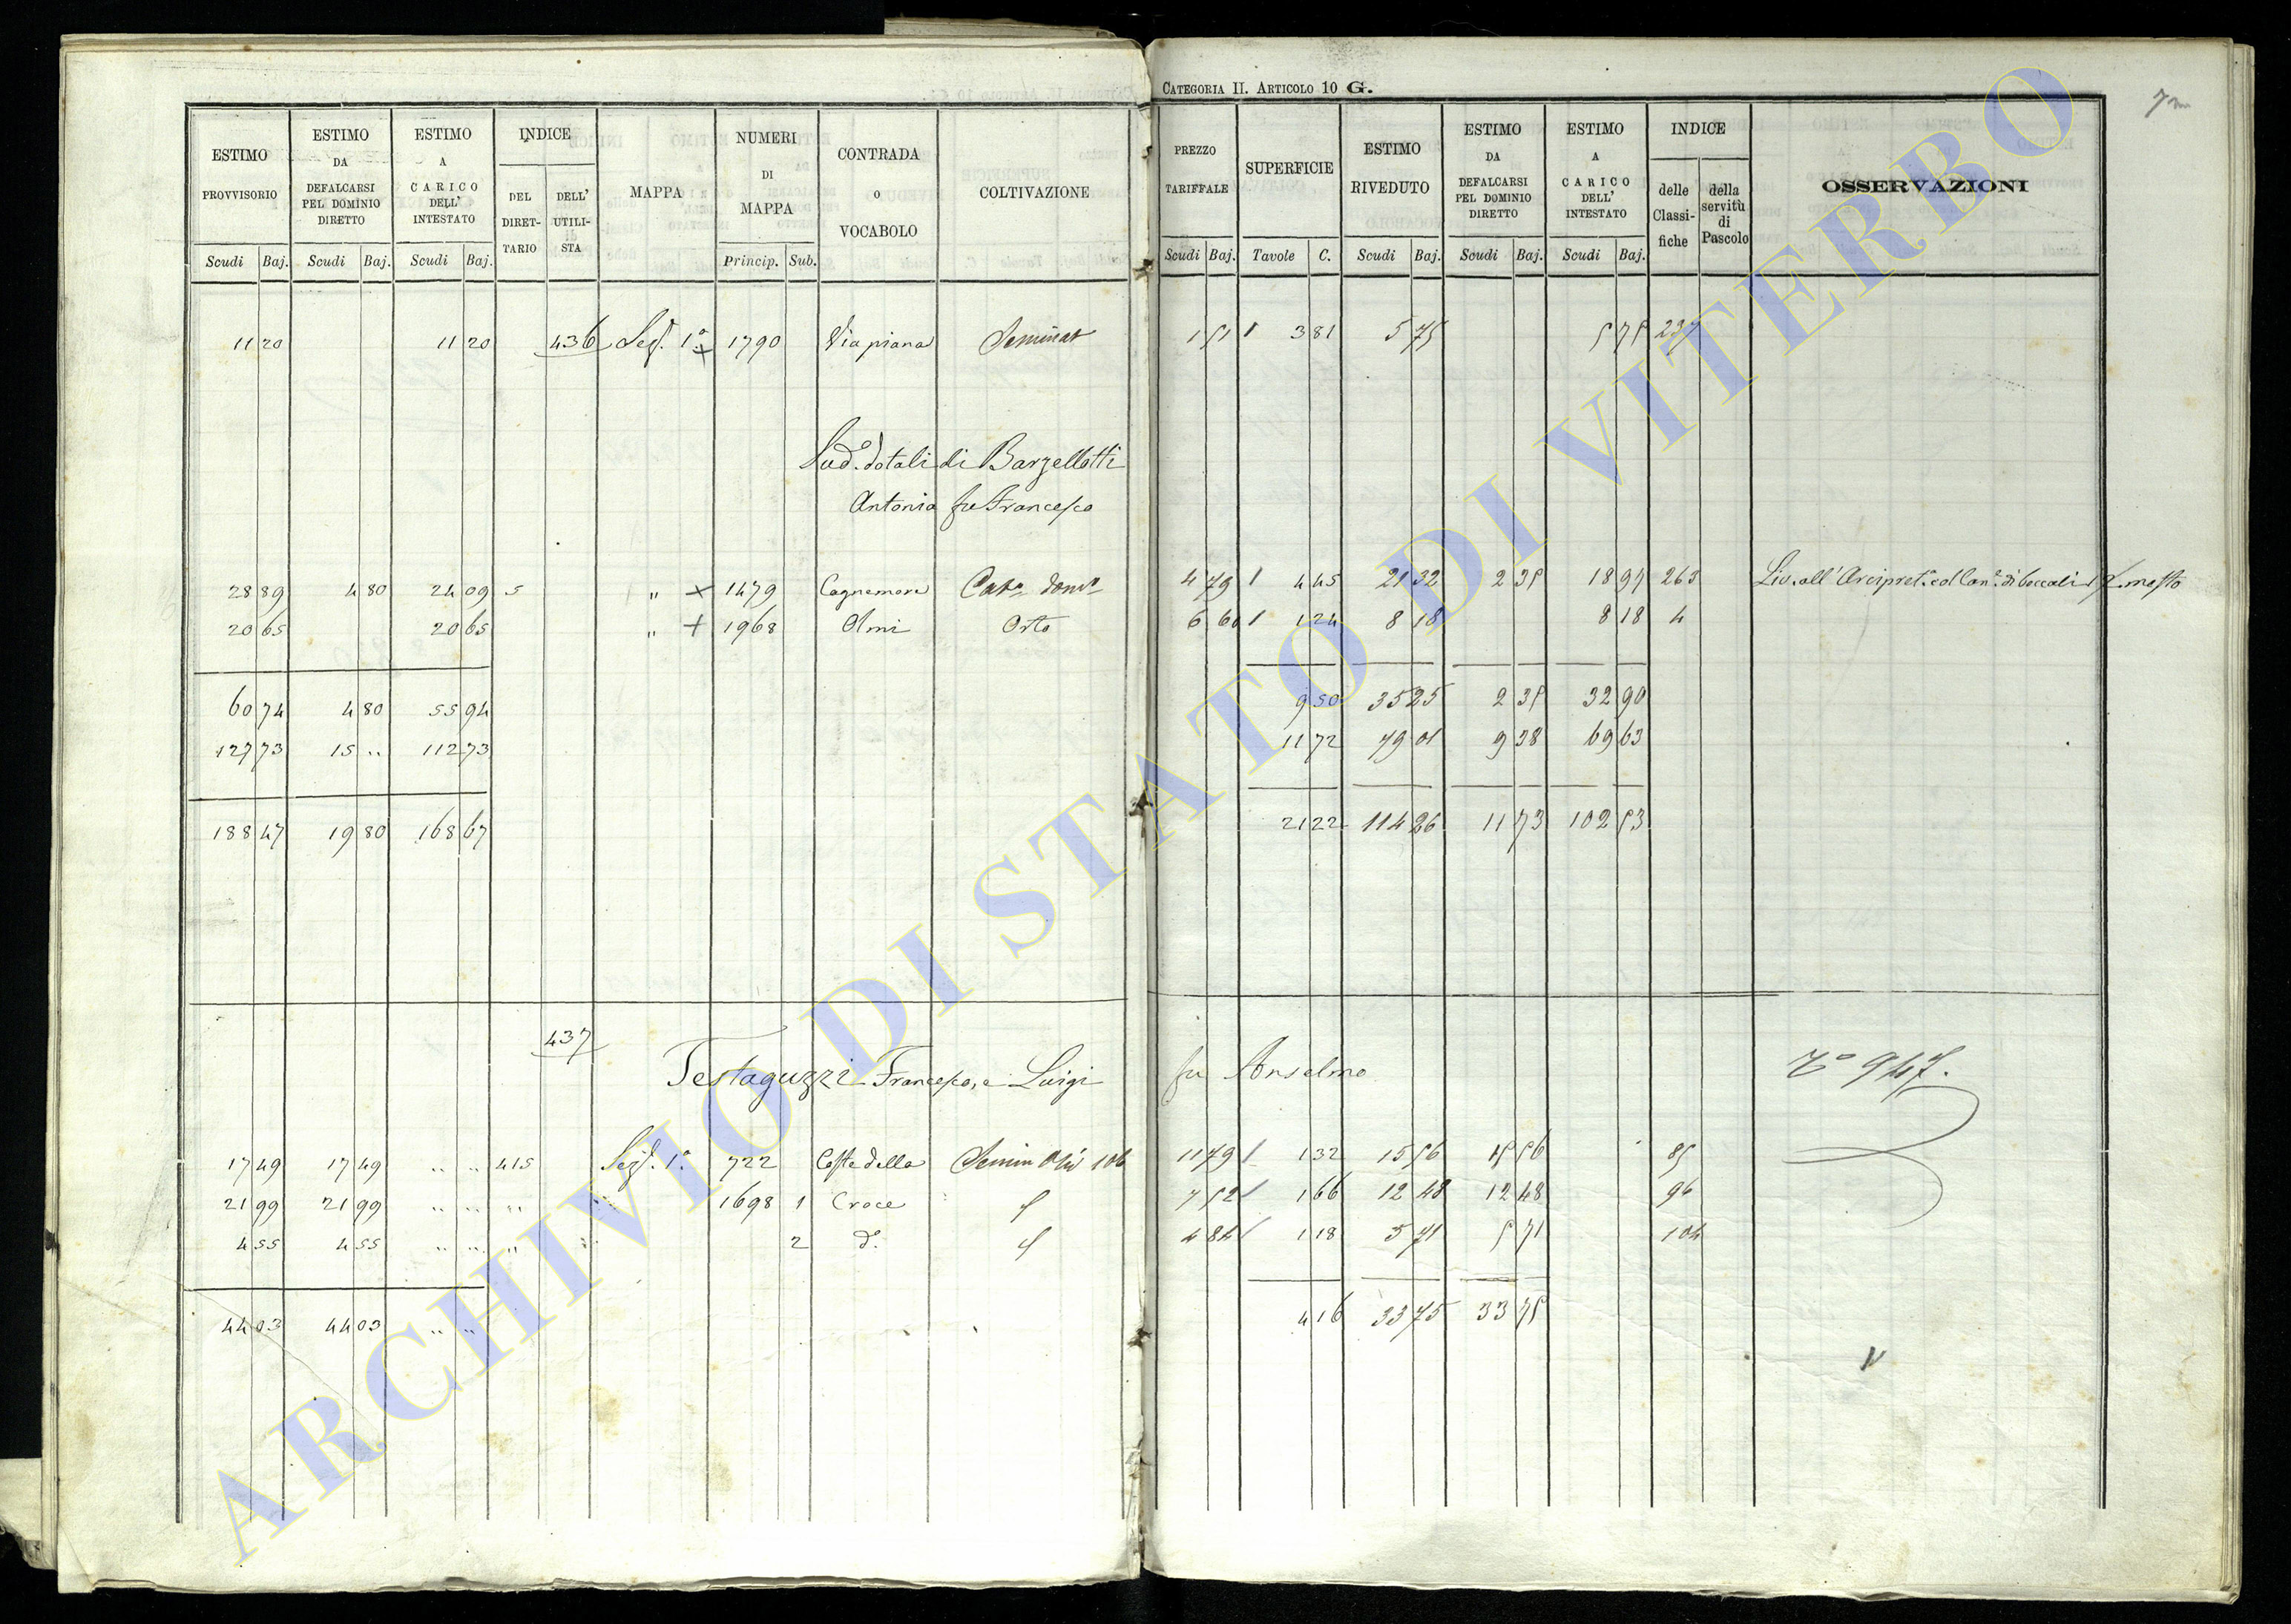 CATEGORIA II. ARTICOLO 10 G.
ESTIMO PROVVISORIO Scudi Baj. ESTIMO DA DEFALCARSI PEL DOMINIO DIRETTO Scudi Baj. ESTIMO A CARICO DELL' INTESTATO Scudi Baj. INDICE DEL DIRETTARIO DELL' UTILISTA MAPPA NUMERI DI MAPPA Princip. Sub. CONTRADA o VOCABOLO COLTIVAZIONE
PREZZO TARIFFALE Scudi Baj. SUPERFICIE Tavole C. ESTIMO RIVEDUTO Scudi Baj. ESTIMO DA DEFALCARSI PEL DOMINIO DIRETTO Scudi Baj. ESTIMO A CARICO DELL' INTESTATO Scudi Baj. INDICE delle Classifiche della servitù di Pascolo OSSERVAZIONI
11 20 11 20 436 Sez. 1ª 1790 Via piana Seminat 1 51 3 81 5 75 5 75 237
Sud. dotali di Barzellotti
Antonia fu Francesco
28 89 4 80 24 09 5 " 1479 Cagnemora 4 79 4 45 21 32 2 35 18 97 263 Liv. all'Arcipret.
20 65 20 65 " 1968 Olmi Orto 6 60 1 24 8 18 8 18 4
60 74 4 80 55 94 9 50 35 25 2 35 32 90
127 73 15 .. 112 73 11 72 79 01 9 38 69 63
188 47 19 80 168 67 21 22 114 26 11 73 102 53
437 Testaguzzi Francesco, e Luigi fu Anselmo 947.
17 49 17 49 .. .. 415 Sez. 1ª 722 Coste della Semin Oliv 106 11 79 1 32 15 56 15 56 85
21 99 21 99 .. .. " 1698 1 Croce 7 52 1 66 12 48 12 48 96
4 55 4 55 .. .. " 2 d.° 4 84 1 18 5 71 5 71 104
44 03 44 03 .. .. 4 16 33 75 33 75
ARCHIVIO DI STATO DI VITERBO